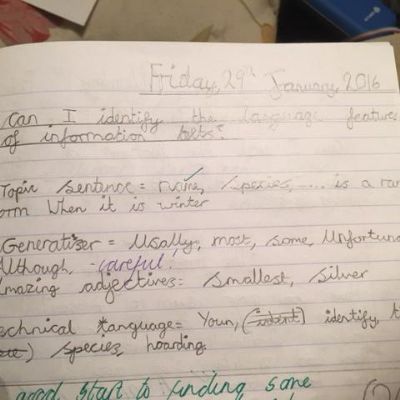 Friday, 29th January, 2016
Can I identify the language features
of information texts?
Topic sentence = name, species, .... is a
orm When it is winter
Generaliser = Usally, most, some, Unfortuna
Although, - careful!
mazing adjectives: smallest, silver
echnical language= Youn, (ident) identify t
) species, hoarding.
good start to finding some